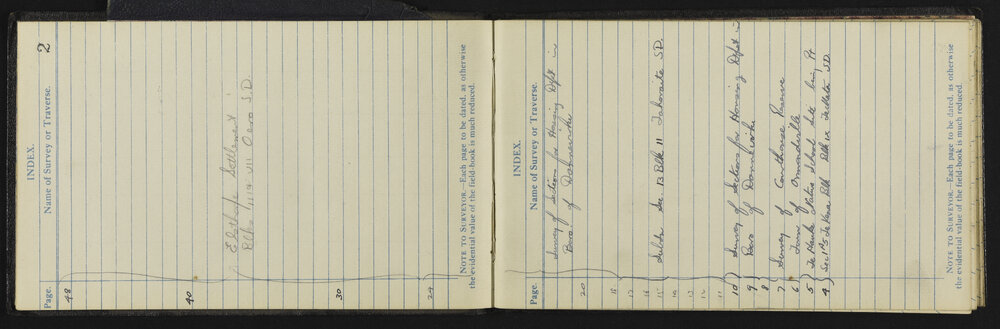 2
INDEX.
Page. Name of Survey or Traverse.
48
40
Settlement
Blks VII S.D.
30
29
NOTE TO SURVEYOR.—Each page to be dated, as otherwise
the evidential value of the field-book is much reduced.
INDEX.
Page. Name of Survey or Traverse.
Survey of Sections for Housing Dept in
Boro of Dannevirke
20
18
17
16
15 Subdn Sec 13 Blk 11 Tahoraite S.D.
14
13
12
11
10 Survey of Sections for Housing Dept in
9 Boro of Dannevirke
8
7 Survey of Courthouse Reserve
6 Town of Ormondville
5 State School Site being Pt
4 Sec 1 Blk S.D.
NOTE TO SURVEYOR.—Each page to be dated, as otherwise
the evidential value of the field-book is much reduced.